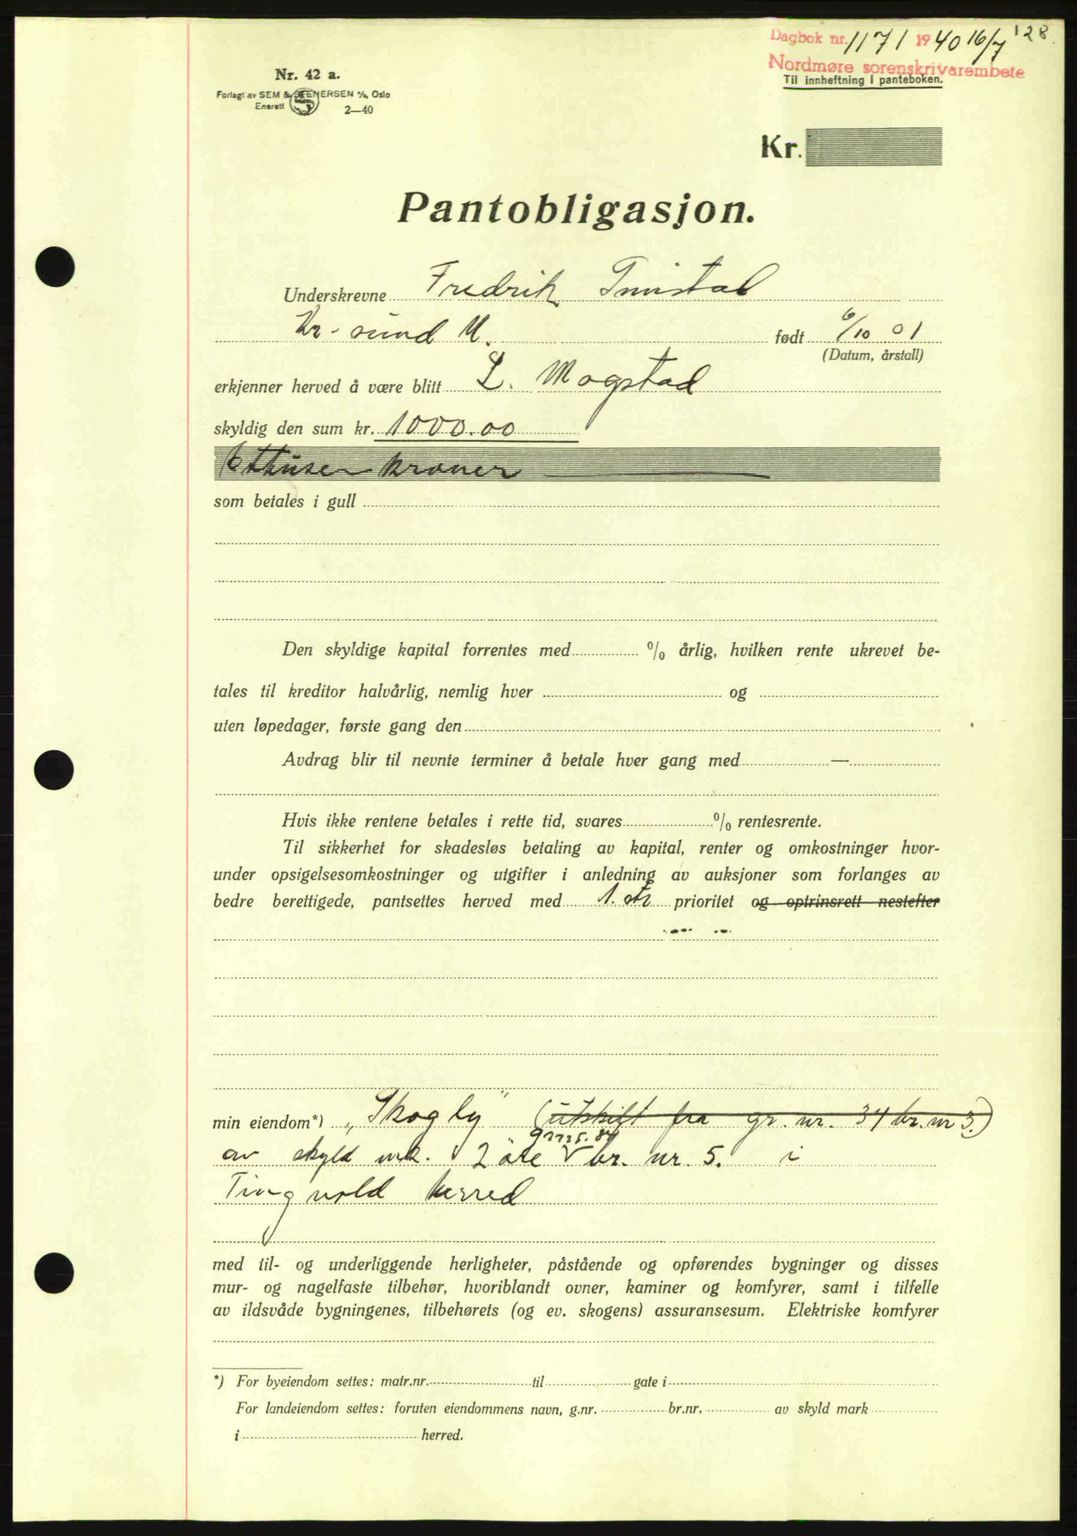 128.
Dagbok nr. 1171 1940 16/7
Nordmøre sorenskriverembete
Til innheftning i panteboken.
Nr. 42 a.
Forlagt av SEM & STENERSEN A/S, Oslo
Enerett
2—40
Kr.
Pantobligasjon.
Underskrevne Fredrik
Kr-sund N. født 6/10 01
(Datum, årstall)
erkjenner herved å være blitt L. Mogstad
skyldig den sum kr. 1000.00
Ettusen kroner
som betales i gull
Den skyldige kapital forrentes med % årlig, hvilken rente ukrevet be-
tales til kreditor halvårlig, nemlig hver og
uten løpedager, første gang den
Avdrag blir til nevnte terminer å betale hver gang med —
Hvis ikke rentene betales i rette tid, svares % rentesrente.
Til sikkerhet for skadesløs betaling av kapital, renter og omkostninger hvor-
under opsigelsesomkostninger og utgifter i anledning av auksjoner som forlanges av
bedre berettigede, pantsettes herved med 1. ste prioritet og optrinsrett nestefter
min eiendom*) „Skogly" (utskilt fra gr. nr. 34 br. nr 3.)
av skyld mrk. 2 øre br. nr. 5. i
Tingvold herred
med til- og underliggende herligheter, påstående og opførendes bygninger og disses
mur- og nagelfaste tilbehør, hvoriblandt ovner, kaminer og komfyrer, samt i tilfelle
av ildsvåde bygningenes, tilbehørets (og ev. skogens) assuransesum. Elektriske komfyrer
*) For byeiendom settes: matr.nr. til gate i
For landeiendom settes: foruten eiendommens navn, g.nr. br.nr. av skyld mark
i herred.